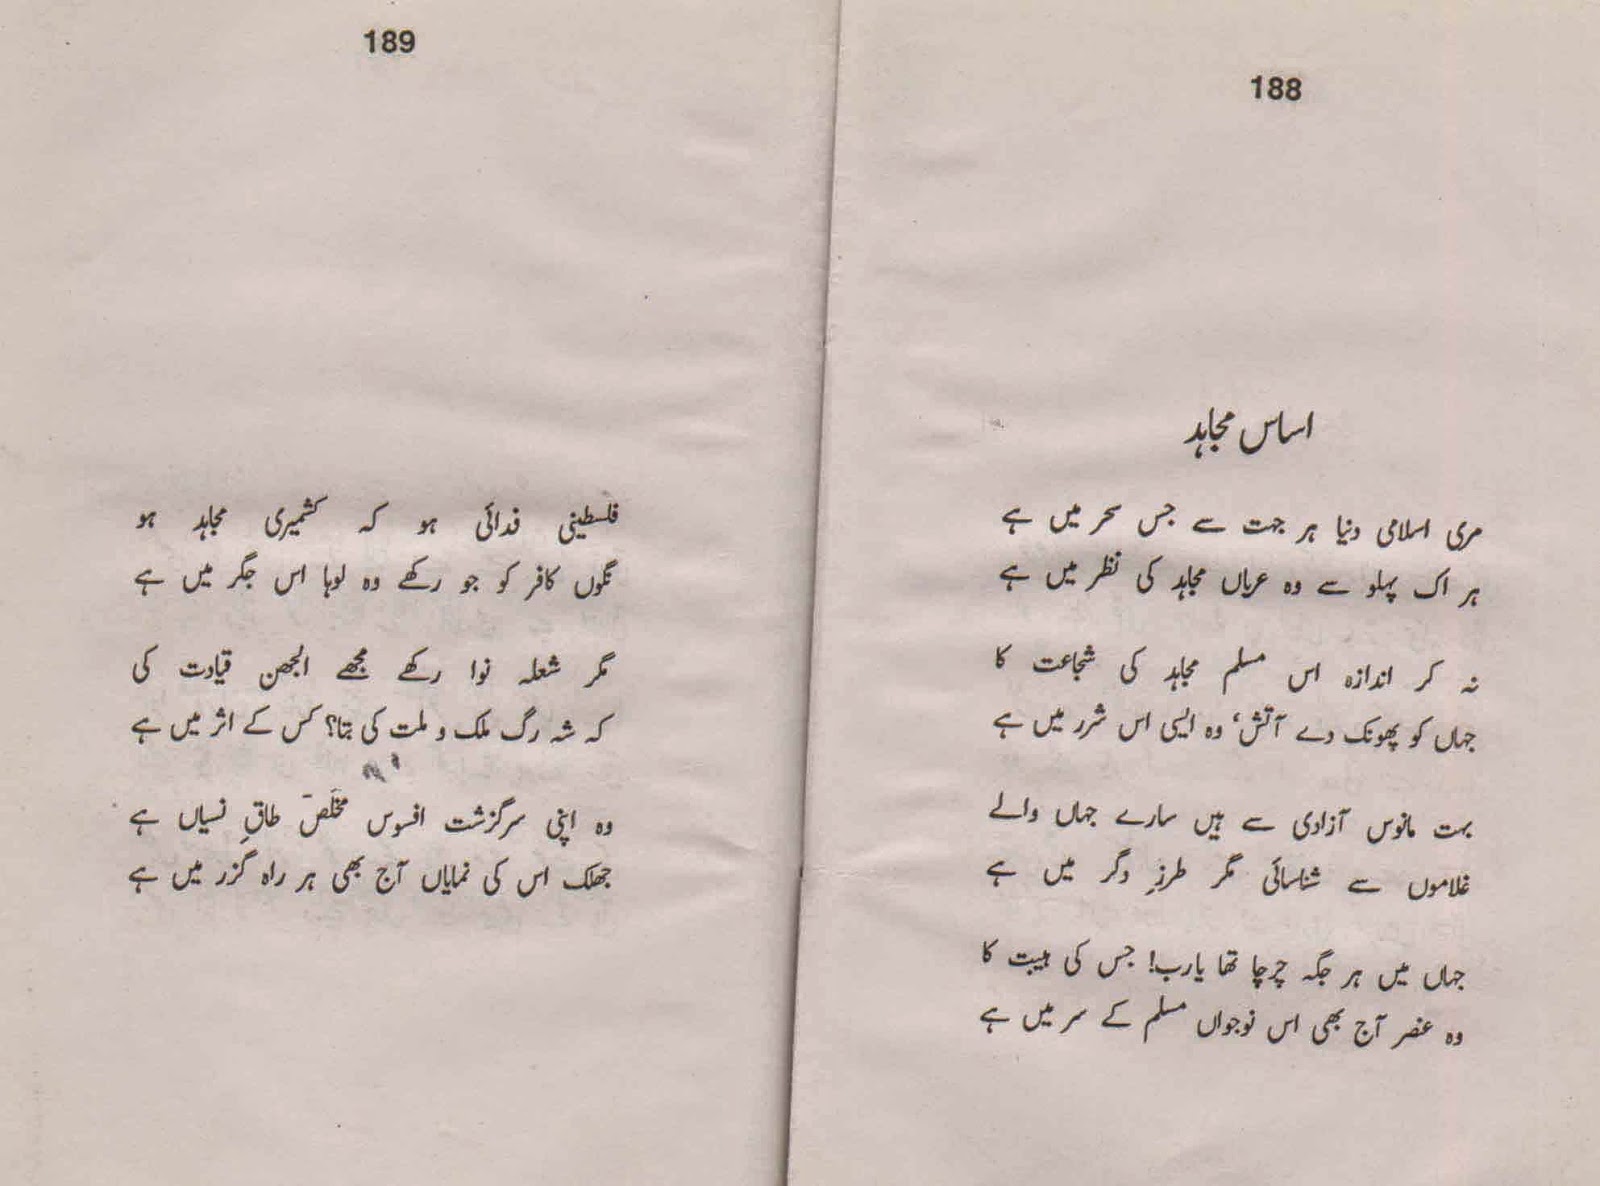 188
اساس مجاہد
مری اسلامی دنیا ہر جہت سے جس سحر میں ہے
ہر اک پہلو سے وہ عریاں مجاہد کی نظر میں ہے
نہ کر اندازہ اس مسلم مجاہد کی شجاعت کا
جہاں کو پھونک دے آتش، وہ ایسی اس شرر میں ہے
بہت مانوس آزادی سے ہیں سارے جہاں والے
غلاموں سے شناسائی مگر طرزِ دگر میں ہے
جہاں میں ہر جگہ چرچا تھا یارب! جس کی ہیبت کا
وہ عنصر آج بھی اس نوجواں مسلم کے سر میں ہے
189
فلسطینی فدائی ہو کہ کشمیری مجاہد ہو
نگوں کافر کو جو رکھے وہ لوہا اس جگر میں ہے
مگر شعلہ نوا رکھے مجھے الجھن قیادت کی
کہ شہ رگ ملک و ملت کی بتا؟ کس کے اثر میں ہے
وہ اپنی سرگزشت افسوس مخلصؔ طاقِ نسیاں ہے
جھلک اس کی نمایاں آج بھی ہر راہ گزر میں ہے